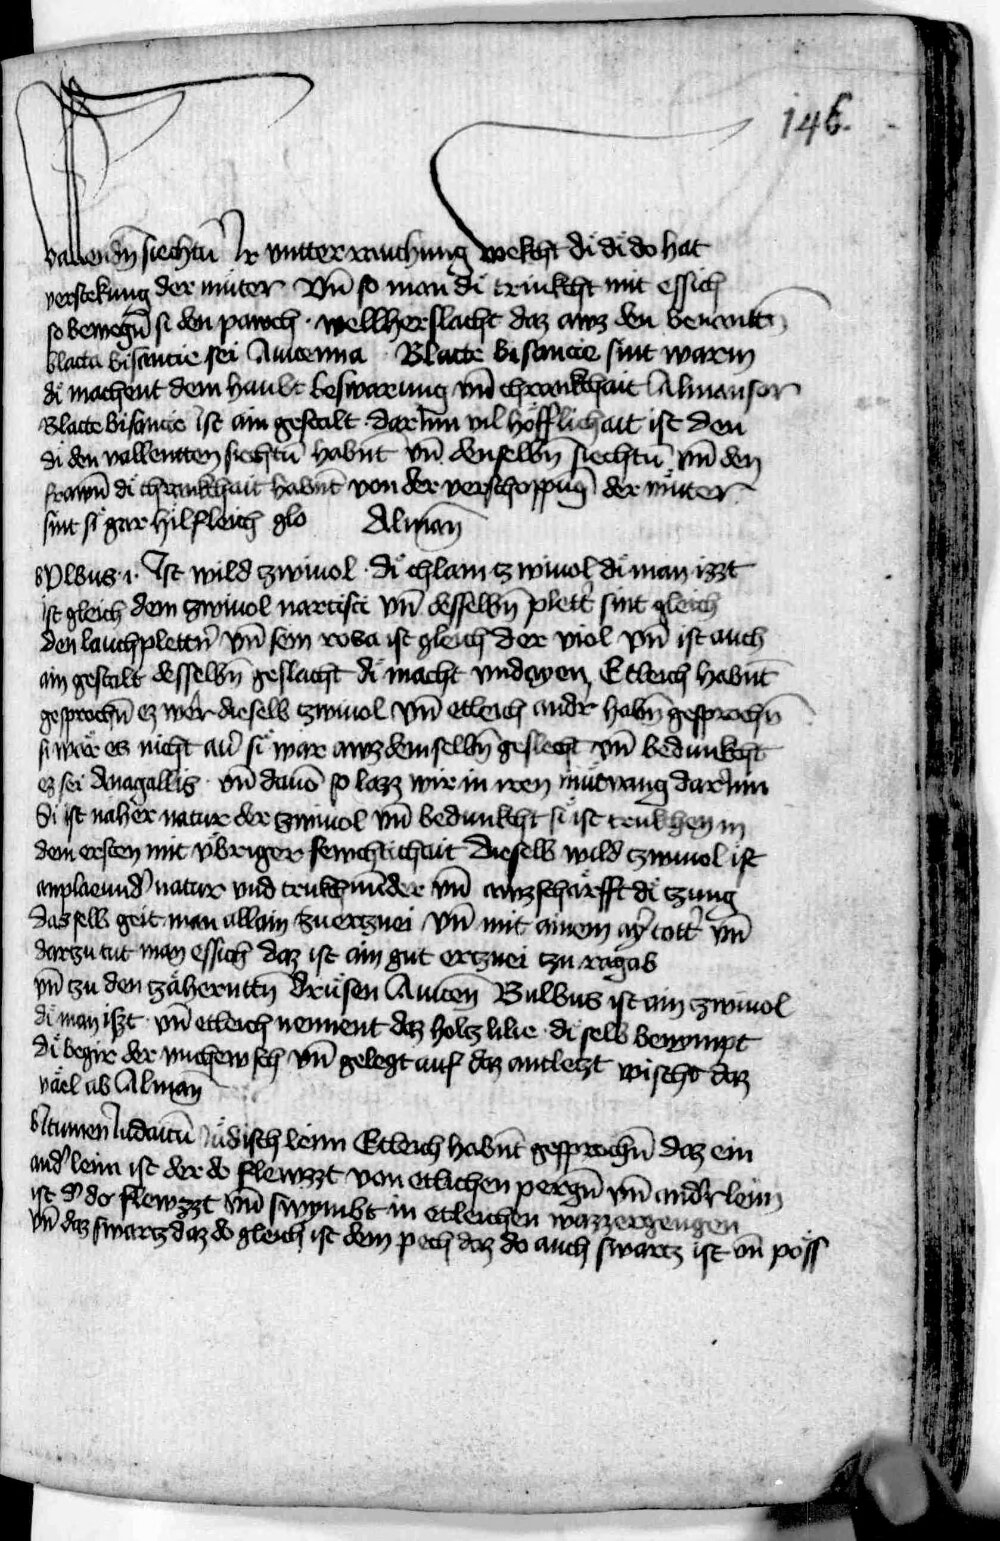 146.
vallendn̄ siechtū Ir vntter rauchung wekcht dı̈ dı̈ do hat
verstekung der müter Vn̄ so man dı̈ trinkcht mit essich
so bewegn̄ si den pawch · wellherslacht daz awz den benantn̄
blacta bisantie sei Auicenna · Blacte bisantie sint warm
dı̈ machent dem haubt beswarung vn̄ chrankchait Almansor
Blacte bisantie Ist ain gestalt · darinn vil höfflichait ist den
dı̈ den vallentten siechtū habnt vn̄ denselbn̄ siechtū vn̄ den
frawn̄ dı̈ chrankchait habnt von der verschoppūg der müter
sint si gar hilfleich glo Alman̄
bVlbus · i · Ist wild zwiuol · dı̈ chlain zwiuol dı̈ man izzt
ist gleich dem zwiuol narcisci vn̄ desselbn̄ plett' sint gleich
den lauchplettn̄ vn̄ sein rosa ist gleich der viol vn̄ ist auch
ain gestalt desselbn̄ geslacht dı̈ macht vndayen Etleich habnt
gesprochn̄ ez wer dieselb zwiuol vn̄ etleich andr habn̄ gesprochn̄
si wär es nicht au' si wär awz demselbn̄ geslecht vn̄ bedunkcht
ez sei Anagallis · vn̄ dauō so lazz wir in iren müt vang darinn
di ist naher natur der zwiuol vn̄ bedunkcht si ist trukhen in
dem ersten mit vbriger fewchtichait Dieselb wild zwiuol ist
anplaeund' natur vnd trukchunder vn̄ awzschärfft dı̈ zung
dasselb geit man allain zu ertznei vn̄ mit ainem ay'tott' vn̄
dartzu tut man essich daz ist ain gut ertznei tzu ragab
vn̄ tzu den zähernttn̄ drüsen Auicen̄ Bulbus ist ain zwiuol
dı̈ man iszt · vn̄ etleich nennent daz holtz lilie · dı̈ selb benympt
dı̈ begir der vnchewsch vn̄ gelegt auf daz antletzt wischt daz
väel ab Alman̄
bItumen Iudaicū Iüdisch leim Etleich habnt gesprochn̄ daz ein
and' leim ist der do flewzzt von etlichen pergn̄ vn̄ andr leim
ist d' do flewzzt vn̄ swymbt in etleichen wazzergengen
vn̄ daz swartz daz do gleich ist dem pech daz do auch swartz ist vn̄ pöss